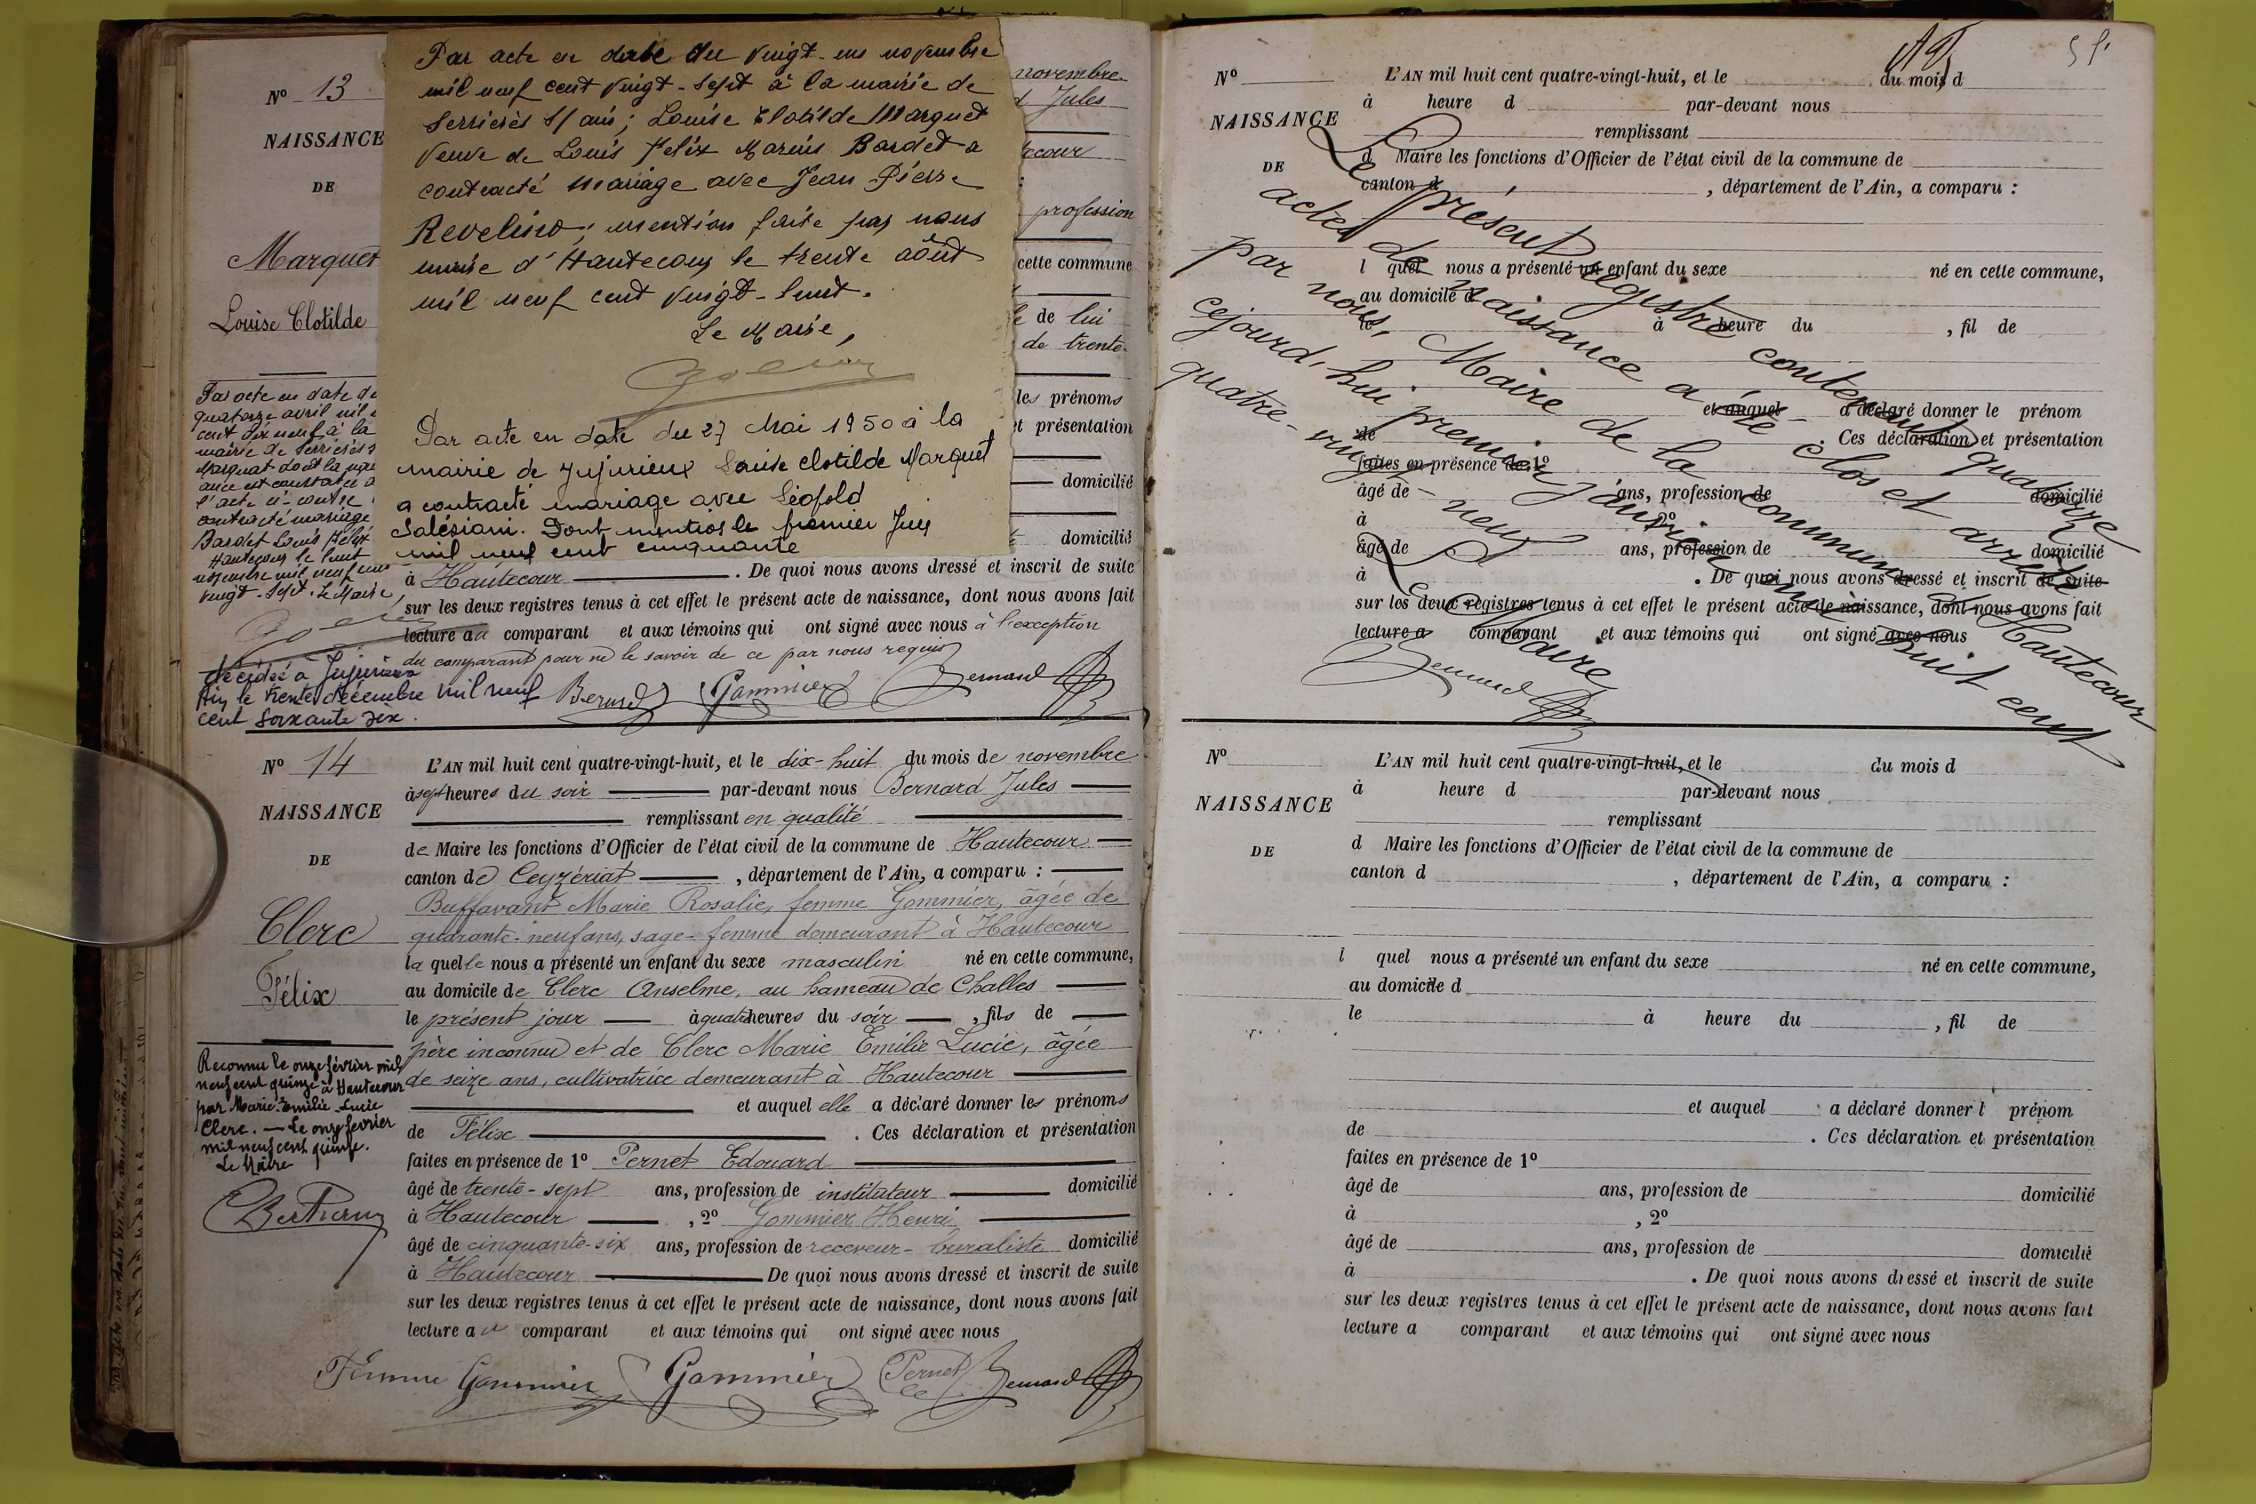 N° 13
NAISSANCE
DE
Marquet
Louise Clotilde
Par acte en date du vingt-un novembre
mil neuf cent vingt-sept à la mairie de
Serrières s/ ain; Louise Clotilde Marquet
veuve de Louis Félix Marius Bardet a
contracté mariage avec Jean Pierre
Revelino; mention faite par nous
maire d'Hautecour le trente août
mil neuf cent vingt-huit.
Le Maire,
Par acte en date du 27 Mai 1950 à la
mairie de Jujurieux Louise Clotilde Marquet
a contracté mariage avec Léopold
Salésiani. Dont mention le premier Juin
mil neuf cent cinquante
novembre
Jules
profession
cette commune
de lui
de trente-
les prénoms
et présentation
domicilié
domicilié
Par acte en date du
quatorze avril mil
cent dix neuf à la
mairie de Serrières s
Marquet dont la nais
ance est constatée
l'acte ci-contre
contracté mariage
Bardet Louis Félix
Hautecour le huit
novembre mil neuf cent
vingt-sept. Le Maire,
décédée à Jujurieux
Ain, le trente décembre mil neuf
cent soixante dix.
à Hautecour . De quoi nous avons dressé et inscrit de suite
sur les deux registres tenus à cet effet le présent acte de naissance, dont nous avons fait
lecture au comparant et aux témoins qui ont signé avec nous à l'exception
du comparant pour ne le savoir de ce par nous requis
Gommier Bernard
N° 14
NAISSANCE
DE
Clerc
Félix
Reconnu le onze février mil
neuf cent quinze à Hautecour
par Marie-Emilie-Lucie
Clerc. — Le onze février
mil neuf cent quinze.
Le Maire
L'AN mil huit cent quatre-vingt-huit, et le dix-huit du mois de novembre
à sept heures du soir par-devant nous Bernard Jules
remplissant en qualité
de Maire les fonctions d'Officier de l'état civil de la commune de Hautecour
canton de Ceyzériat , département de l'Ain, a comparu :
Buffavant Marie Rosalie, femme Gommier, âgée de
quarante-neuf ans, sage-femme demeurant à Hautecour
laquelle nous a présenté un enfant du sexe masculin né en cette commune,
au domicile de Clerc Anselme, au hameau de Challes
le présent jour à quatre heures du soir , fils de
père inconnu et de Clerc Marie Emilie Lucie, âgée
de seize ans, cultivatrice demeurant à Hautecour
et auquel elle a déclaré donner les prénoms
de Félix . Ces déclaration et présentation
faites en présence de 1° Pernet Edouard
âgé de trente-sept ans, profession de instituteur domicilié
à Hautecour , 2° Gommier Henri
âgé de cinquante-six ans, profession de receveur-buraliste domicilié
à Hautecour De quoi nous avons dressé et inscrit de suite
sur les deux registres tenus à cet effet le présent acte de naissance, dont nous avons fait
lecture au comparant et aux témoins qui ont signé avec nous
Femme Gommier Gommier Pernet Bernard
N°
NAISSANCE
DE
L'AN mil huit cent quatre-vingt-huit, et le du mois d
à heure d par-devant nous
remplissant
d Maire les fonctions d'Officier de l'état civil de la commune de
canton d , département de l'Ain, a comparu :
l quel nous a présenté un enfant du sexe né en cette commune,
au domicile d
le à heure du , fil de
et auquel a déclaré donner le prénom
de . Ces déclaration et présentation
faites en présence de 1°
âgé de ans, profession de domicilié
à 2°
âgé de ans, profession de domicilié
à . De quoi nous avons dressé et inscrit de suite
sur les deux registres tenus à cet effet le présent acte de naissance, dont nous avons fait
lecture a comparant et aux témoins qui ont signé avec nous
Le présent registre contenant quatorze
actes de naissance a été clos et arrêté
par nous, Maire de la commune d'Hautecour
cejourd'hui premier janvier mil huit cent
quatre-vingt-neuf
Le Maire,
Bernard
N°
NAISSANCE
DE
L'AN mil huit cent quatre-vingt-huit, et le du mois d
à heure d par-devant nous
remplissant
d Maire les fonctions d'Officier de l'état civil de la commune de
canton d , département de l'Ain, a comparu :
l quel nous a présenté un enfant du sexe né en cette commune,
au domicile d
le à heure du , fil de
et auquel a déclaré donner l prénom
de . Ces déclaration et présentation
faites en présence de 1°
âgé de ans, profession de domicilié
à , 2°
âgé de ans, profession de domicilié
à . De quoi nous avons dressé et inscrit de suite
sur les deux registres tenus à cet effet le présent acte de naissance, dont nous avons fait
lecture a comparant et aux témoins qui ont signé avec nous